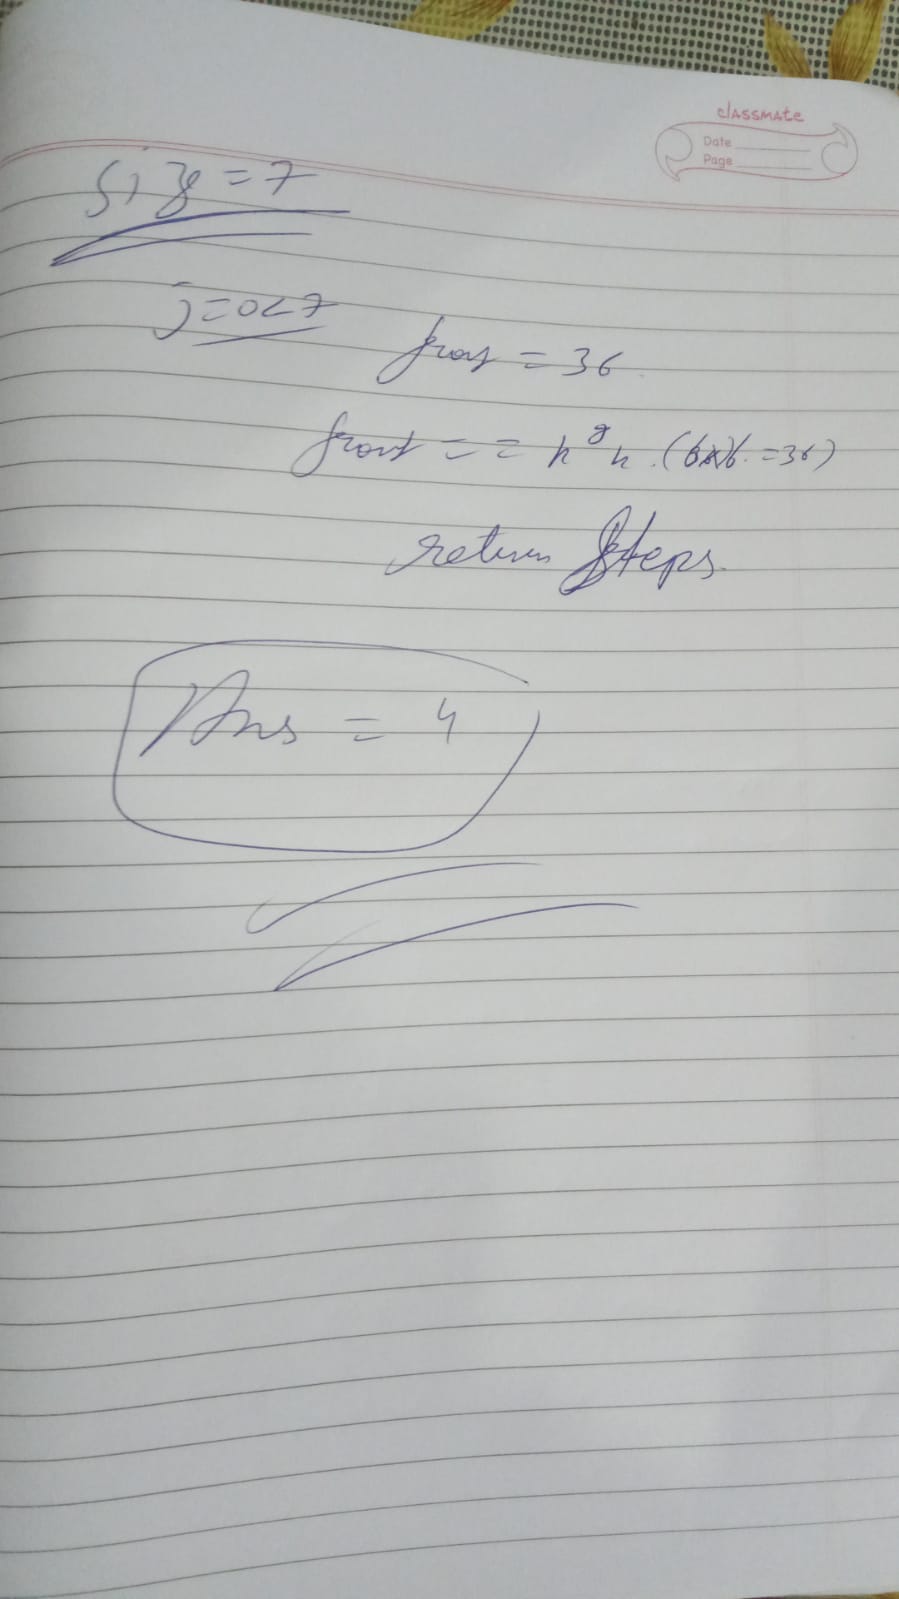 classmate
Date
Page
size = 7
j=0<7
front = 36
front == n*n. (6x6. =36)
return Steps.
Ans = 4